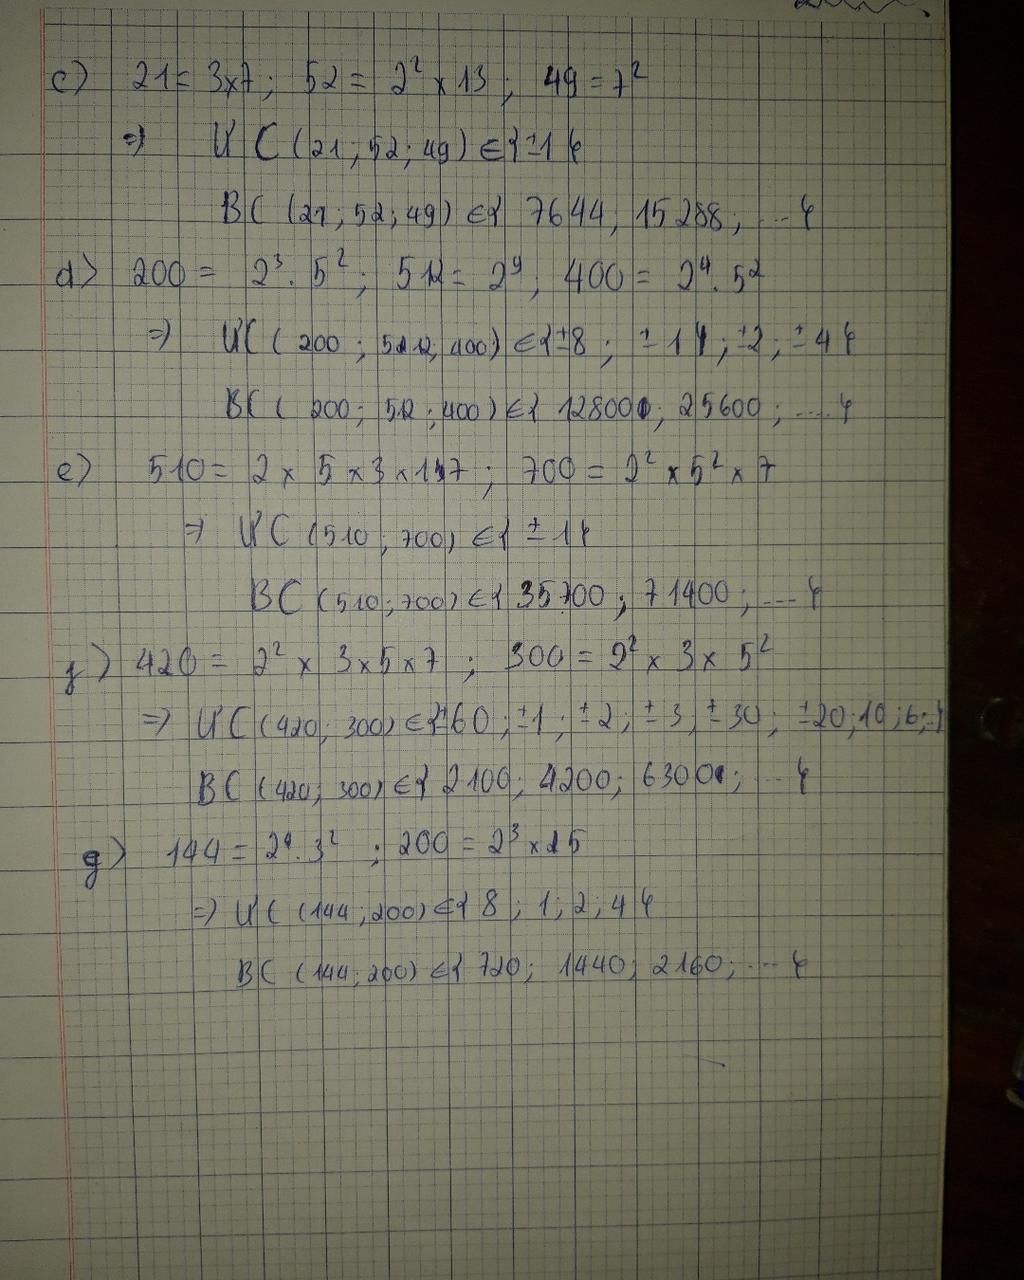 c) 21 = 3x7; 52 = 2² x 13; 49 = 7²
=> ƯC (21; 52; 49) ∈ {±1}
BC (21; 52; 49) ∈ { 7644; 15288; ... }
d) 200 = 2³. 5²; 512 = 2⁹; 400 = 2⁴. 5²
=> ƯC (200; 512; 400) ∈ {±8; ±1; ±2; ±4}
BC (200; 512; 400) ∈ { 12800; 25600; ... }
e) 510 = 2 x 5 x 3 x 17; 700 = 2² x 5² x 7
=> ƯC (510; 700) ∈ { ±1}
BC (510; 700) ∈ { 35700; 71400; ... }
f) 420 = 2² x 3 x 5 x 7; 300 = 2² x 3 x 5²
=> ƯC (420; 300) ∈ {±60; ±1; ±2; ±3; ±30; ±20; 10; 6; ..}
BC (420; 300) ∈ { 2100; 4200; 6300; ... }
g) 144 = 2⁴. 3²; 200 = 2³ x 25
=> ƯC (144; 200) ∈ { 8; 1; 2; 4 }
BC (144; 200) ∈ { 720; 1440; 2160; ... }